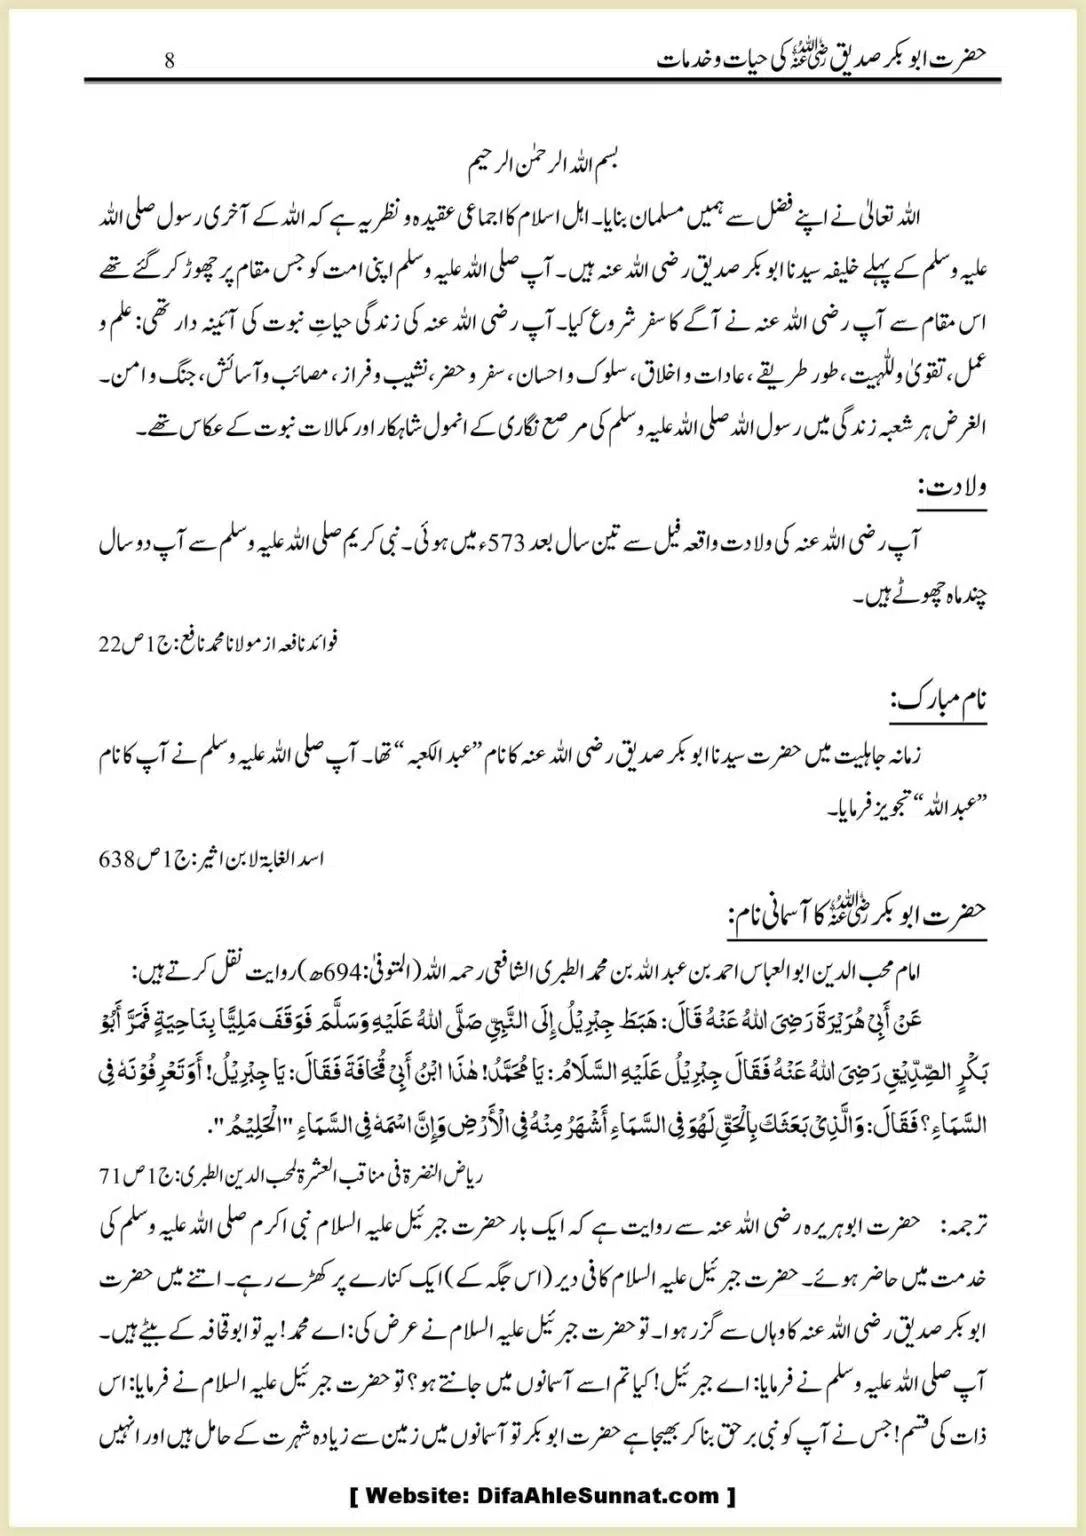 حضرت ابو بکر صدیق رضی اللہ عنہ کی حیات و خدمات 8
بسم اللہ الرحمٰن الرحیم
اللہ تعالیٰ نے اپنے فضل سے ہمیں مسلمان بنایا۔ اہل اسلام کا اجماعی عقیدہ و نظریہ ہے کہ اللہ کے آخری رسول صلی اللہ
علیہ وسلم کے پہلے خلیفہ سیدنا ابو بکر صدیق رضی اللہ عنہ ہیں۔ آپ صلی اللہ علیہ وسلم اپنی امت کو جس مقام پر چھوڑ کر گئے تھے
اس مقام سے آپ رضی اللہ عنہ نے آگے کا سفر شروع کیا۔ آپ رضی اللہ عنہ کی زندگی حیاتِ نبوت کی آئینہ دار تھی: علم و
عمل، تقویٰ وللّٰہیت، طور طریقے، عادات و اخلاق، سلوک و احسان، سفر و حضر، نشیب و فراز، مصائب و آسائش، جنگ و امن۔
الغرض ہر شعبہ زندگی میں رسول اللہ صلی اللہ علیہ وسلم کی مرصع نگاری کے انمول شاہکار اور کمالات نبوت کے عکاس تھے۔
ولادت:
آپ رضی اللہ عنہ کی ولادت واقعہ فیل سے تین سال بعد 573ء میں ہوئی۔ نبی کریم صلی اللہ علیہ وسلم سے آپ دو سال
چند ماہ چھوٹے ہیں۔
فوائد نافعہ از مولانا محمد نافع: ج1 ص22
نام مبارک:
زمانہ جاہلیت میں حضرت سیدنا ابو بکر صدیق رضی اللہ عنہ کا نام ”عبد الکعبہ“ تھا۔ آپ صلی اللہ علیہ وسلم نے آپ کا نام
”عبد اللہ“ تجویز فرمایا۔
اسد الغابۃ لابن اثیر: ج1 ص638
حضرت ابو بکر رضی اللہ عنہ کا آسمانی نام:
امام محب الدین ابو العباس احمد بن عبد اللہ بن محمد الطبری الشافعی رحمہ اللہ (المتوفیٰ: 694ھ) روایت نقل کرتے ہیں:
عَنْ أَبِیْ هُرَیْرَةَ رَضِیَ اللهُ عَنْهُ قَالَ: هَبَطَ جِبْرِیْلُ إِلَی النَّبِیِّ صَلَّی اللهُ عَلَیْهِ وَسَلَّمَ فَوَقَفَ مَلِیًّا بِنَاحِیَةٍ فَمَرَّ أَبُوْ
بَکْرٍ الصِّدِّیْقِ رَضِیَ اللهُ عَنْهُ فَقَالَ جِبْرِیْلُ عَلَیْهِ السَّلَامُ: یَا مُحَمَّدُ! هٰذَا ابْنُ أَبِیْ قُحَافَةَ فَقَالَ: یَا جِبْرِیْلُ! أَوَتَعْرِفُوْنَهٗ فِی
السَّمَاءِ؟ فَقَالَ: وَالَّذِیْ بَعَثَكَ بِالْحَقِّ لَهُوَ فِی السَّمَاءِ أَشْهَرُ مِنْهُ فِی الْأَرْضِ وَإِنَّ اسْمَهٗ فِی السَّمَاءِ "الْحَلِیْمُ".
ریاض النضرۃ فی مناقب العشرۃ لمحب الدین الطبری: ج1 ص71
ترجمہ: حضرت ابو ہریرہ رضی اللہ عنہ سے روایت ہے کہ ایک بار حضرت جبرئیل علیہ السلام نبی اکرم صلی اللہ علیہ وسلم کی
خدمت میں حاضر ہوئے۔ حضرت جبرئیل علیہ السلام کافی دیر (اس جگہ کے) ایک کنارے پر کھڑے رہے۔ اتنے میں حضرت
ابو بکر صدیق رضی اللہ عنہ کا وہاں سے گزر ہوا۔ تو حضرت جبرئیل علیہ السلام نے عرض کی: اے محمد! یہ تو ابو قحافہ کے بیٹے ہیں۔
آپ صلی اللہ علیہ وسلم نے فرمایا: اے جبرئیل! کیا تم اسے آسمانوں میں جانتے ہو؟ تو حضرت جبرئیل علیہ السلام نے فرمایا: اس
ذات کی قسم! جس نے آپ کو نبی برحق بنا کر بھیجا ہے حضرت ابو بکر تو آسمانوں میں زمین سے زیادہ شہرت کے حامل ہیں اور انہیں
[ Website: DifaAhleSunnat.com ]